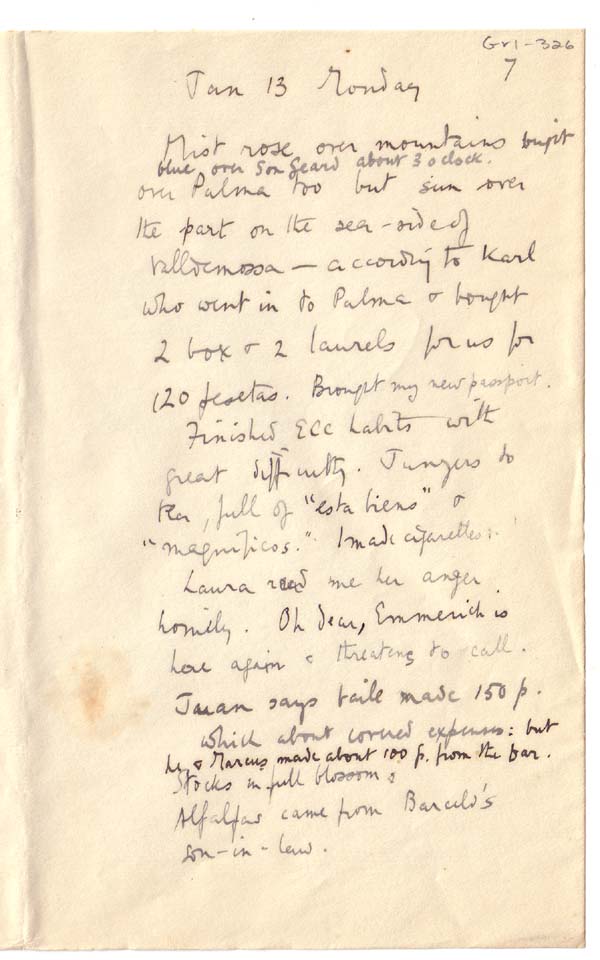 Gr1-326
7
Jan 13 Monday
Mist rose over mountains bright
blue over Son Geard about 3 oclock.
over Palma too but sun over
the part on the sea-side of
Valldemossa — according to Karl
who went in to Palma & bought
2 box & 2 laurels for us for
120 pesetas. Brought my new passport.
Finished Ecc habits with
great difficulty. Jungers to
tea, full of "esta biens" &
"magnificos." I made cigarettes.
Laura read me her anger
homily. Oh dear, Emmerich is
here again & threatens to call.
Juan says baile made 150 p.
which about covered expenses: but
he & Marcus made about 100 p. from the bar.
Stocks in full blossom:
Alfalfas came from Barcelo's
son-in-law.